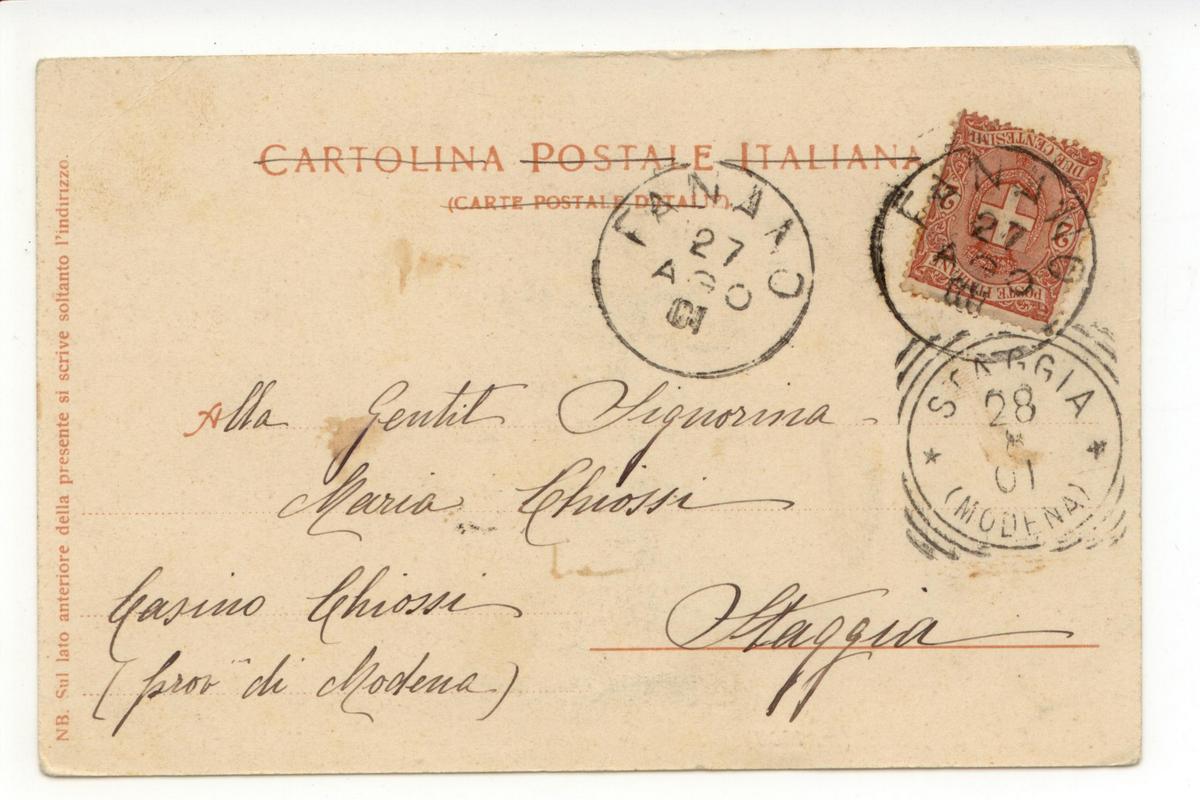 CARTOLINA POSTALE ITALIANA
(CARTE POSTALE D'ITALIE)
DUE CENTESIMI
2 2
POSTE ITALIANE
FANANO
27
AGO
01
27
AGO
STAGGIA
28
01
(MODENA)
Alla Gentil Signorina
Maria Chiossi
Casino Chiossi
Staggia
(prov di Modena)
NB. Sul lato anteriore della presente si scrive soltanto l'indirizzo.